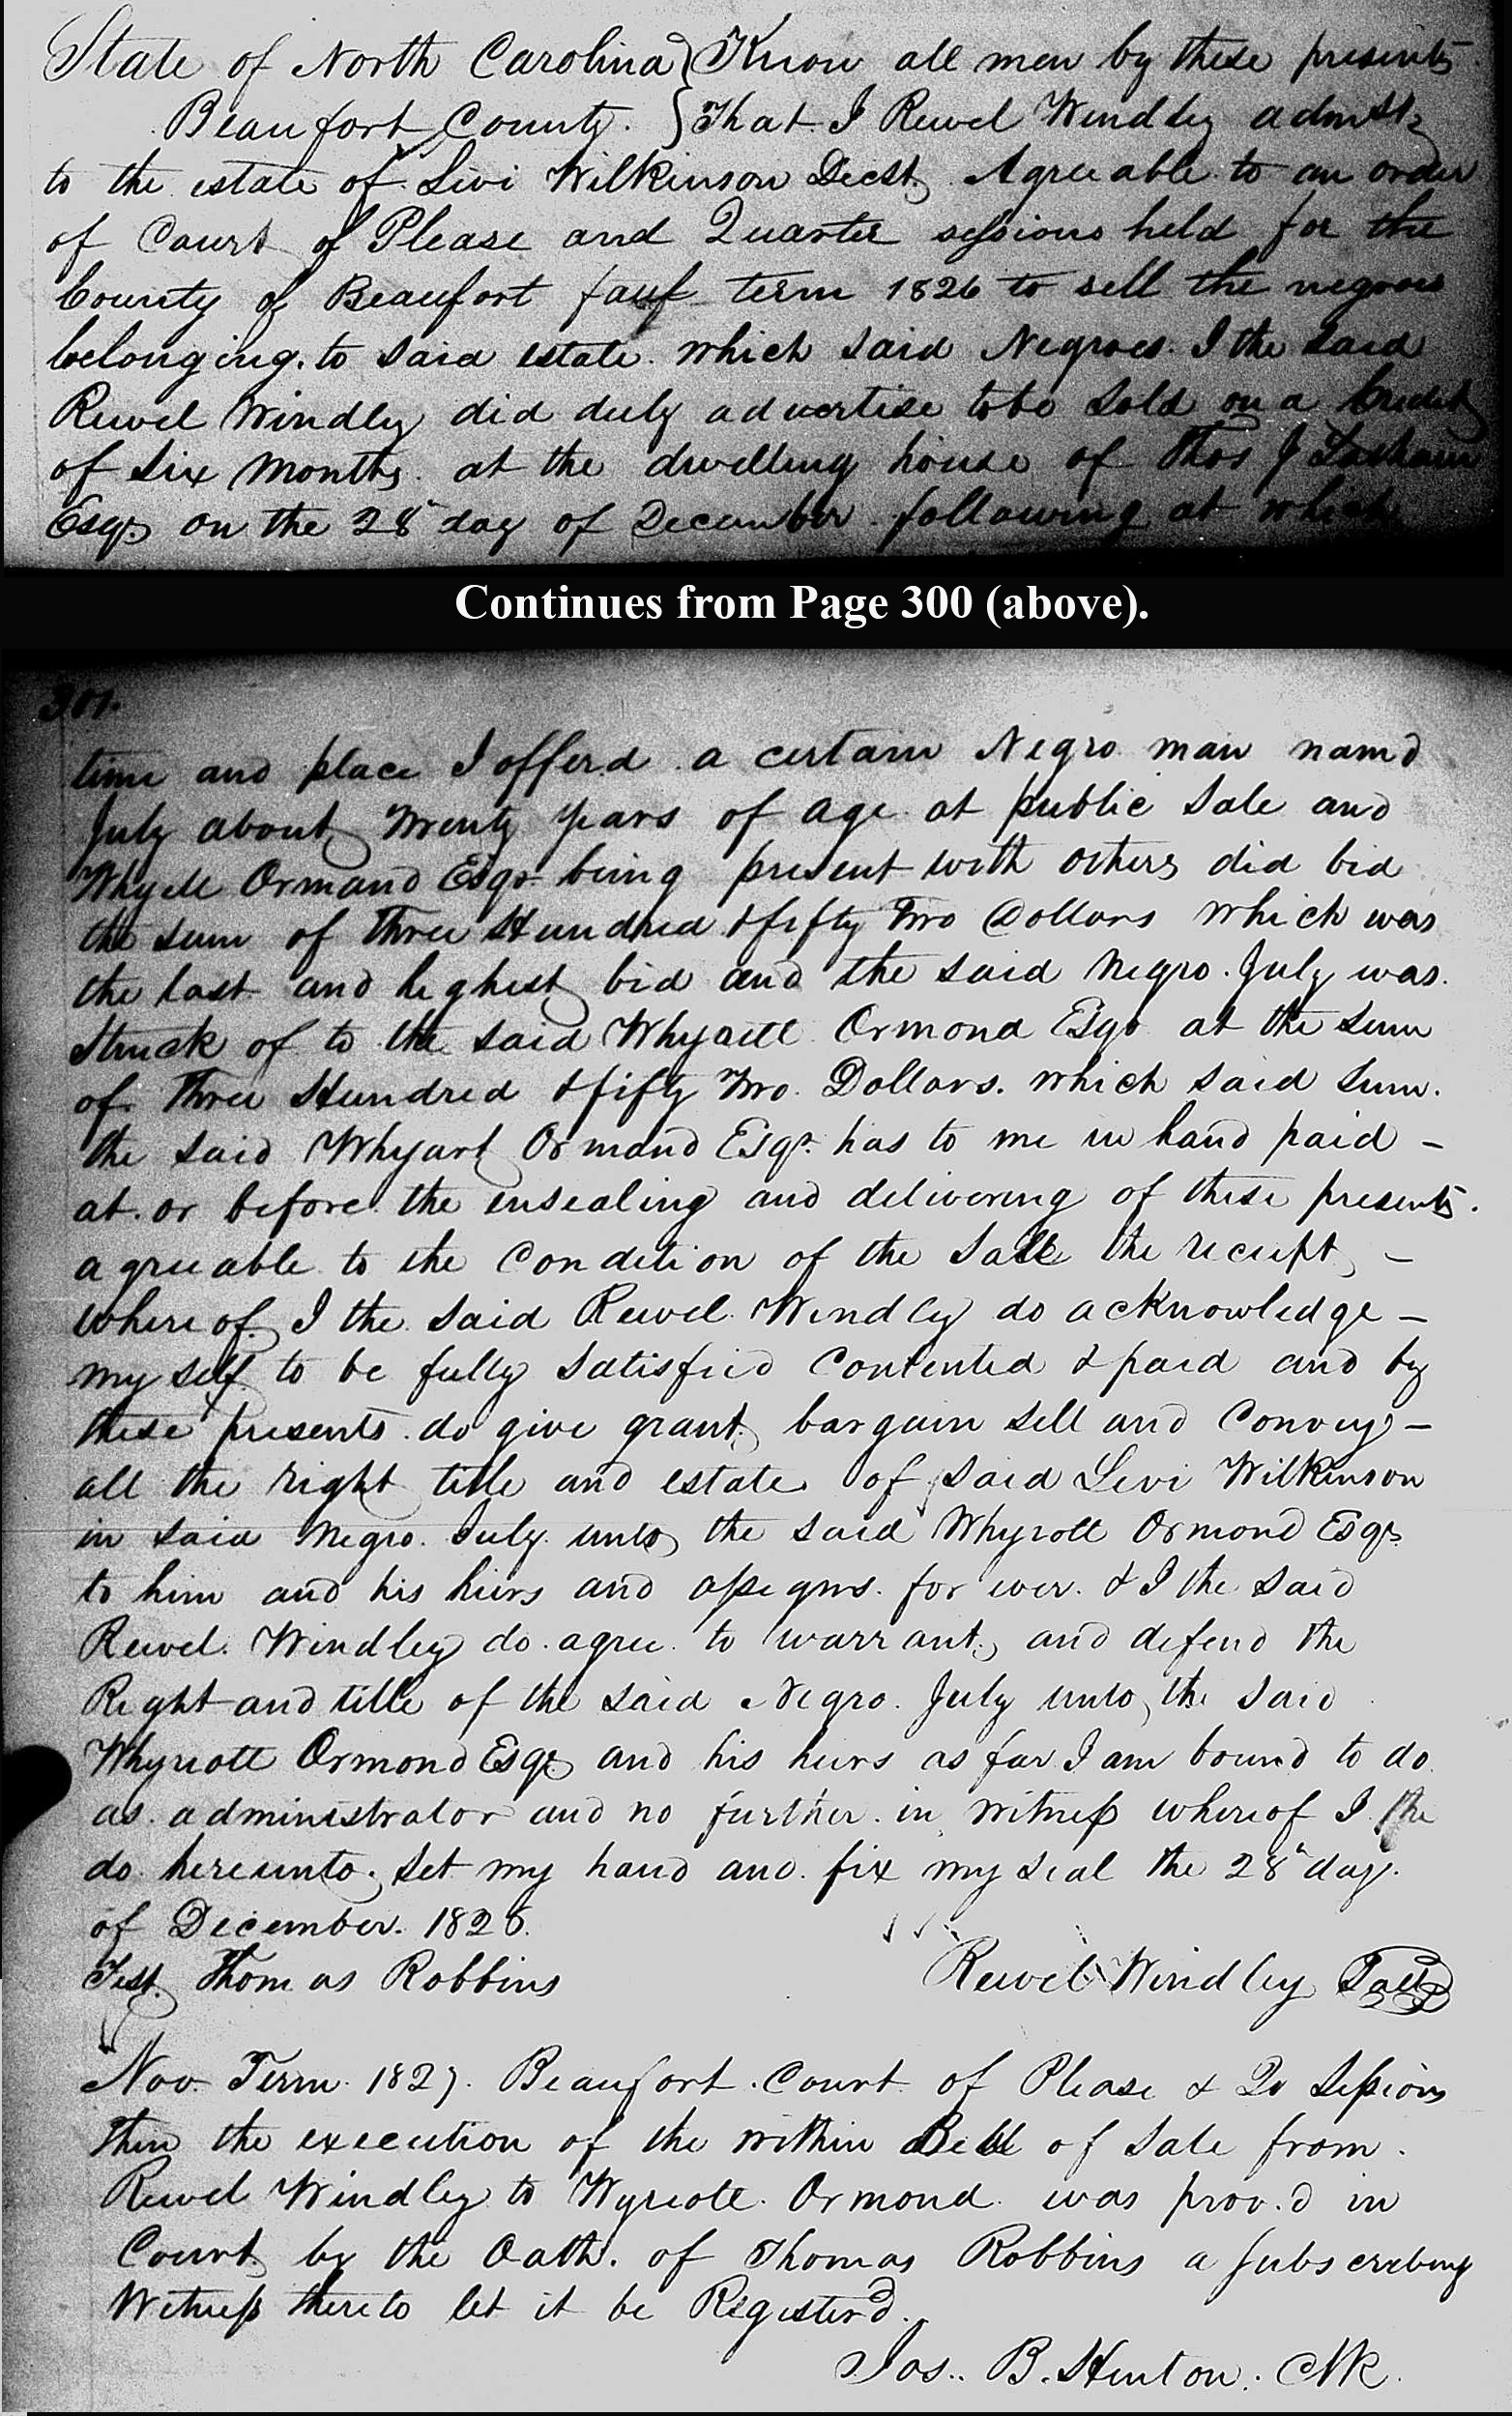 State of North Carolina } Know all men by these presents
Beaufort County. } That I Rewel Windley admstr
to the estate of Levi Wilkinson Decst. Agreeable to an order
of Court of Please and Quarter sessions held for the
County of Beaufort term 1826 to sell the negroes
belonging. to said estate. which said Negroes. I the said
Rewel Windley did duly advertise to be sold on a Credit
of six months. at the dwelling house of Thos J
Esqr. on the 28 day of December. following at which
Continues from Page 300 (above).
301.
time and place I offerd a certain Negro man namd
July about Twenty years of age at public sale and
Whyett Ormand Esqr being present with others did bid
the sum of Three Hundred & fifty Two Dollars which was
the last and highest bid and the said Negro. July was.
Struck of to the said Whyaett Ormond Esqr at the sum
of Three Hundred & fifty Two. Dollars. which said sum.
the said Whyart Ormand Esqr. has to me in hand paid –
at. or before the ensealing and delivering of these presents.
agreeable to the Condition of the Sale the receipt –
where of. I the said Rewel Windley do acknowledge –
my self to be fully satisfied Contented & paid and by
these presents. do give grant. bargain sell and Convey –
all the right title and estate of said Levi Wilkinson
in said Negro. July. unto the said Whyrott Ormond Esqr.
to him and his heirs and assigns. for ever. & I the said
Rewel. Windley do. agree. to warrant. and defend the
Right and title of the said Negro. July unto the said
Whyriott Ormond Esqr and his heirs as far I am bound to do.
as. administrator and no further. in witness whereof I. the
do. hereunto. set my hand and. fix my seal the 28 day.
of December. 1826.
Test. Thomas Robbins Rewel Windley Seal
Nov. Term. 1827. Beaufort. Court of Please & Qr Sessions
then the execution of the within Bill of sale from.
Rewel Windley to Wyriott. Ormond. was prov.d in
Court by the Oath. of Thomas Robbins a subscribing
Witness thereto let it be Registerd.
Jos.. B. Hinton. Clk.